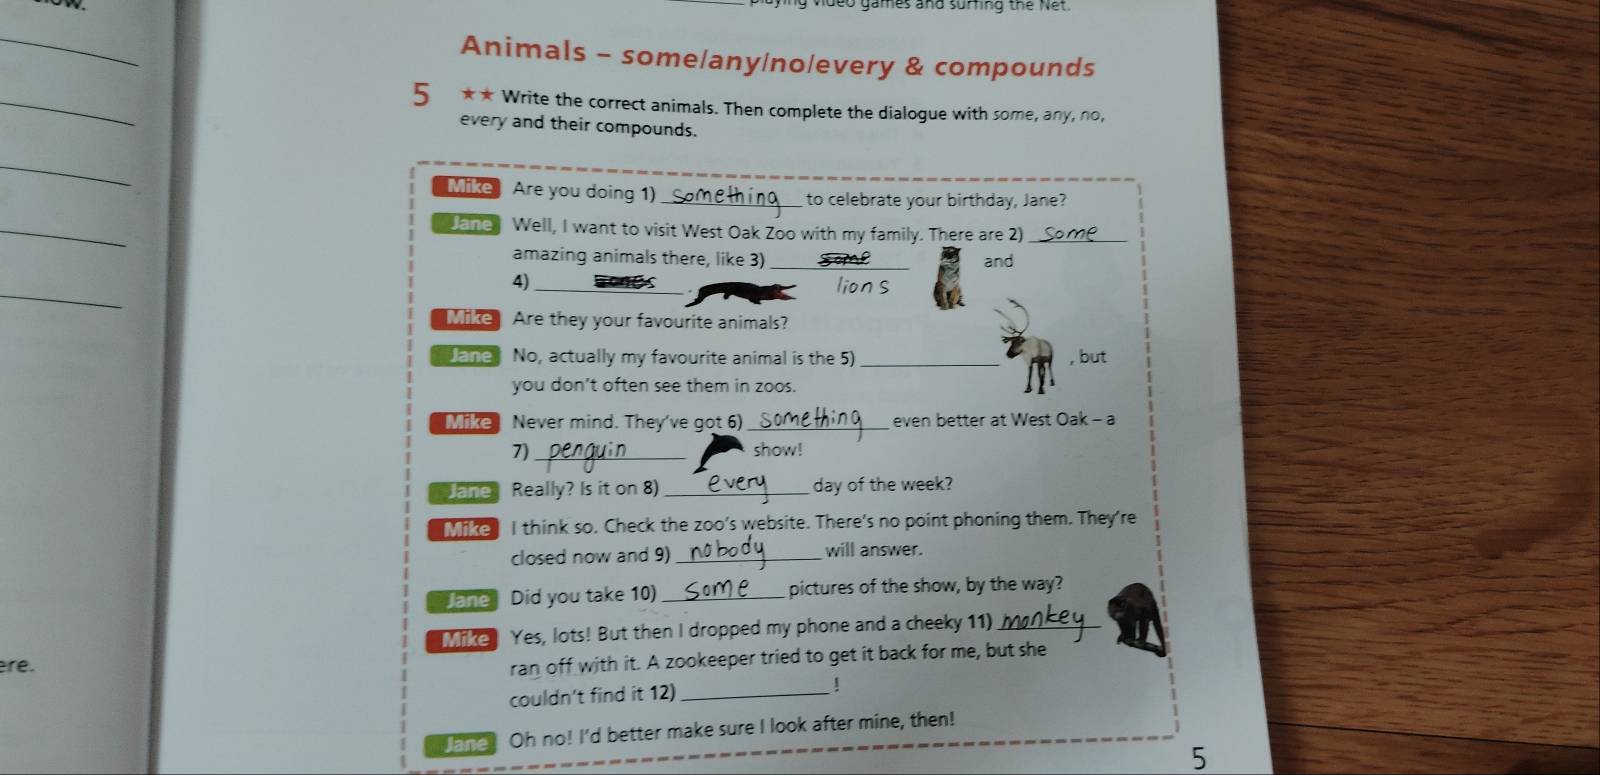 playing video games and surfing the Net.
Animals – some/any/no/every & compounds
5 ★★ Write the correct animals. Then complete the dialogue with some, any, no,
every and their compounds.
Mike Are you doing 1) something to celebrate your birthday, Jane?
Jane Well, I want to visit West Oak Zoo with my family. There are 2) some
amazing animals there, like 3) some and
lions
4) .
Mike Are they your favourite animals?
Jane No, actually my favourite animal is the 5) , but
you don't often see them in zoos.
Mike Never mind. They've got 6) something even better at West Oak – a
7) penguin show!
Jane Really? Is it on 8) every day of the week?
Mike I think so. Check the zoo's website. There's no point phoning them. They're
closed now and 9) nobody will answer.
Jane Did you take 10) some pictures of the show, by the way?
Mike Yes, lots! But then I dropped my phone and a cheeky 11) monkey
ran off with it. A zookeeper tried to get it back for me, but she
couldn't find it 12) !
Jane Oh no! I'd better make sure I look after mine, then!
5